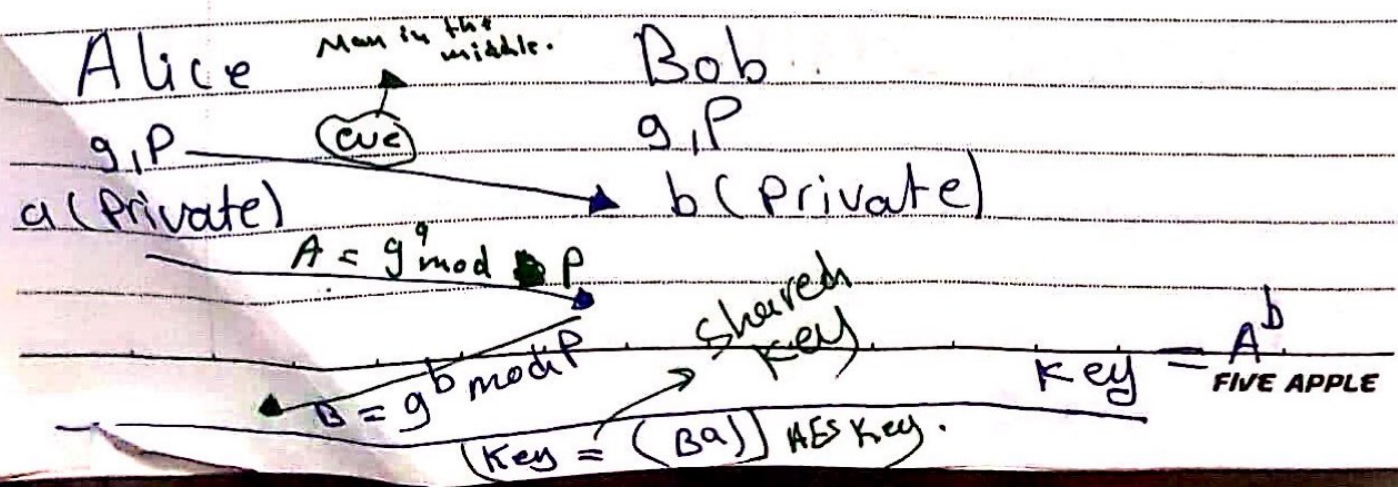 Alice Man in the middle. Bob
g,P eve g,P
a (Private) b (Private)
A = g^a mod P
shared key
B = g^b mod P Key = A^b
FIVE APPLE
(Key = (Ba)) AES Key.